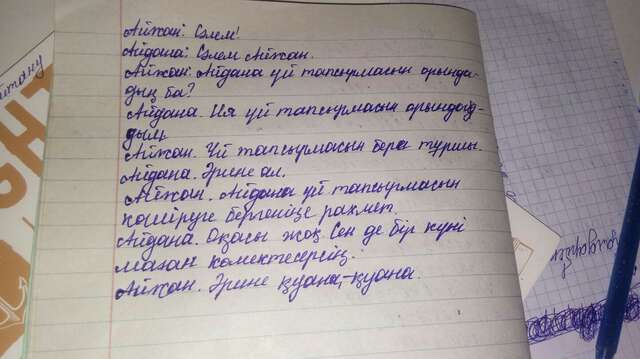 Айжан: Сәлем!
Айдана: Сәлем Айжан.
Айжан: Айдана үй тапсырмасын орында-
дың ба?
Айдана. Ия үй тапсырмасын орында-
дым,
Айжан. Үй тапсырмасын бере тұршы.
Айдана. Әрине ал.
Айжан. Айдана үй тапсырмасын
көшіруге бергеніңе рахмет.
Айдана. Оқасы жоқ. Сен де бір күні
маған көмектесерсің.
Айжан. Әрине қуана-қуана.